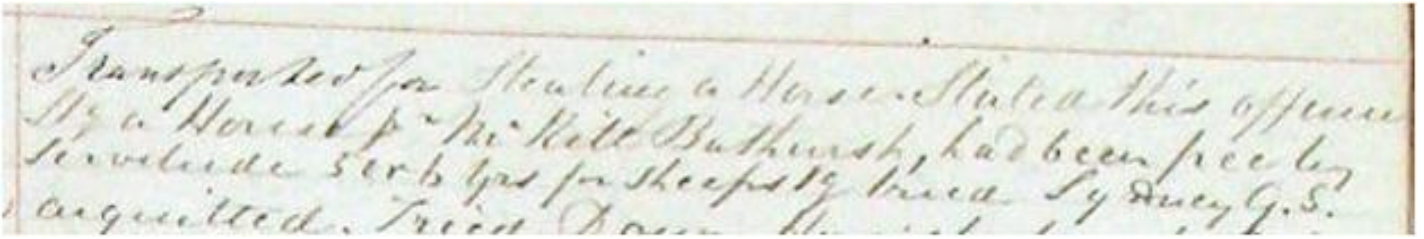 Transported for Stealing a Horse. Stated this offence
Stg a Horse fm Mr Kite Bathurst, had been free by
servitude 5 or 6 yrs for sheepstg tried Sydney Q.S.
acquitted. Tried Down